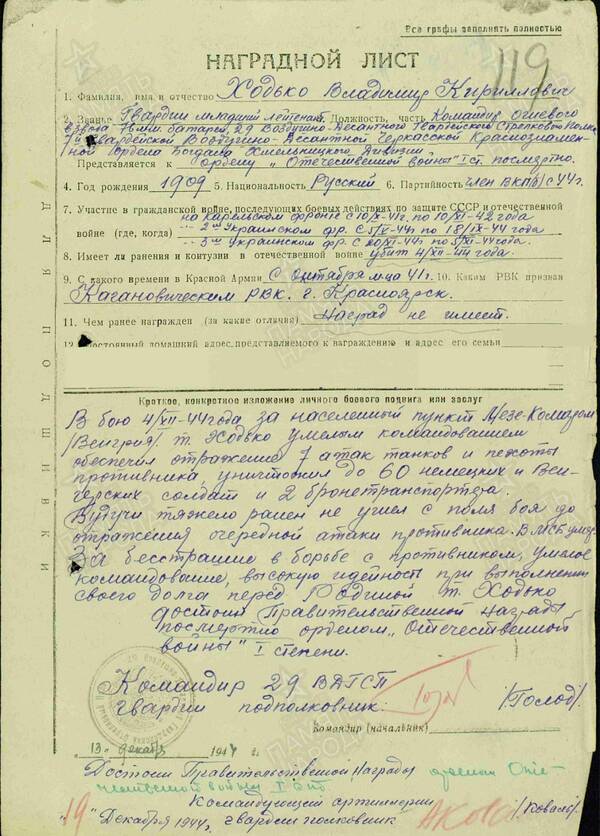 Все графы заполнять полностью
119
НАГРАДНОЙ ЛИСТ
1. Фамилия, имя и отчество Ходько Владимир Кириллович
2. Звание Гвардии младший лейтенант Должность, часть Командир огневого
взвода 76 м.м. батареи, 29 Воздушно-Десантного Гвардейского Стрелкового Полка
7й Гвардейской Воздушно-Десантной Черкасской Краснознамен-
ной Ордена Богдана Хмельницкого дивизии
Представляется к ордену „Отечественной войны" I ст. посмертно.
4. Год рождения 1909 5. Национальность Русский 6. Партийность член ВКП/б/ с 44 г.
7. Участие в гражданской войне, последующих боевых действиях по защите СССР и отечественной
на Карельском фронте с 10/X-41г. по 10/XI-42 года
войне (где, когда) -"- 2ом Украинском фр. с 5/X-44г по 18/IX-44 года
-"- 3ем Украинском фр. с 20/XI-44г по 5/XII-44 года.
8. Имеет ли ранения и контузии в отечественной войне убит 4/XII-44 года.
9. С какого времени в Красной Армии С октября м-ца 41г. 10. Каким РВК призван
Кагановическим РВК. г. Красноярск.
11. Чем ранее награжден (за какие отличия) Наград не имеет.
12. Постоянный домашний адрес представляемого к награждению и адрес его семьи
ДЛЯ ПОДШИВКИ
Краткое, конкретное изложение личного боевого подвига или заслуг
В бою 4/XII-44 года за населенный пункт Мезе-Комаром
/Венгрия/ т. Ходько умелым командованием
обеспечил отражение 7 атак танков и пехоты
противника, уничтожил до 60 немецких и Вен-
герских солдат и 2 бронетранспортера.
Будучи тяжело ранен не ушел с поля боя до
отражения очередной атаки противника. В МСБ умер.
За бесстрашие в борьбе с противником, умелое
командование, высокую идейность при выполнении
своего долга перед Родиной т. Ходько
достоин Правительственной Награды
посмертно орденом „Отечественной
войны" I степени.
Командир 29 ВДГСП
гвардии подполковник: /Голод/
Командир (начальник)
„13" декабря 1944 г.
Достоин Правительственной Награды орденом Оте-
чественной войны I степ
Командующий артиллерии
„19" Декабря 1944г. гвардии полковник /Коваль/